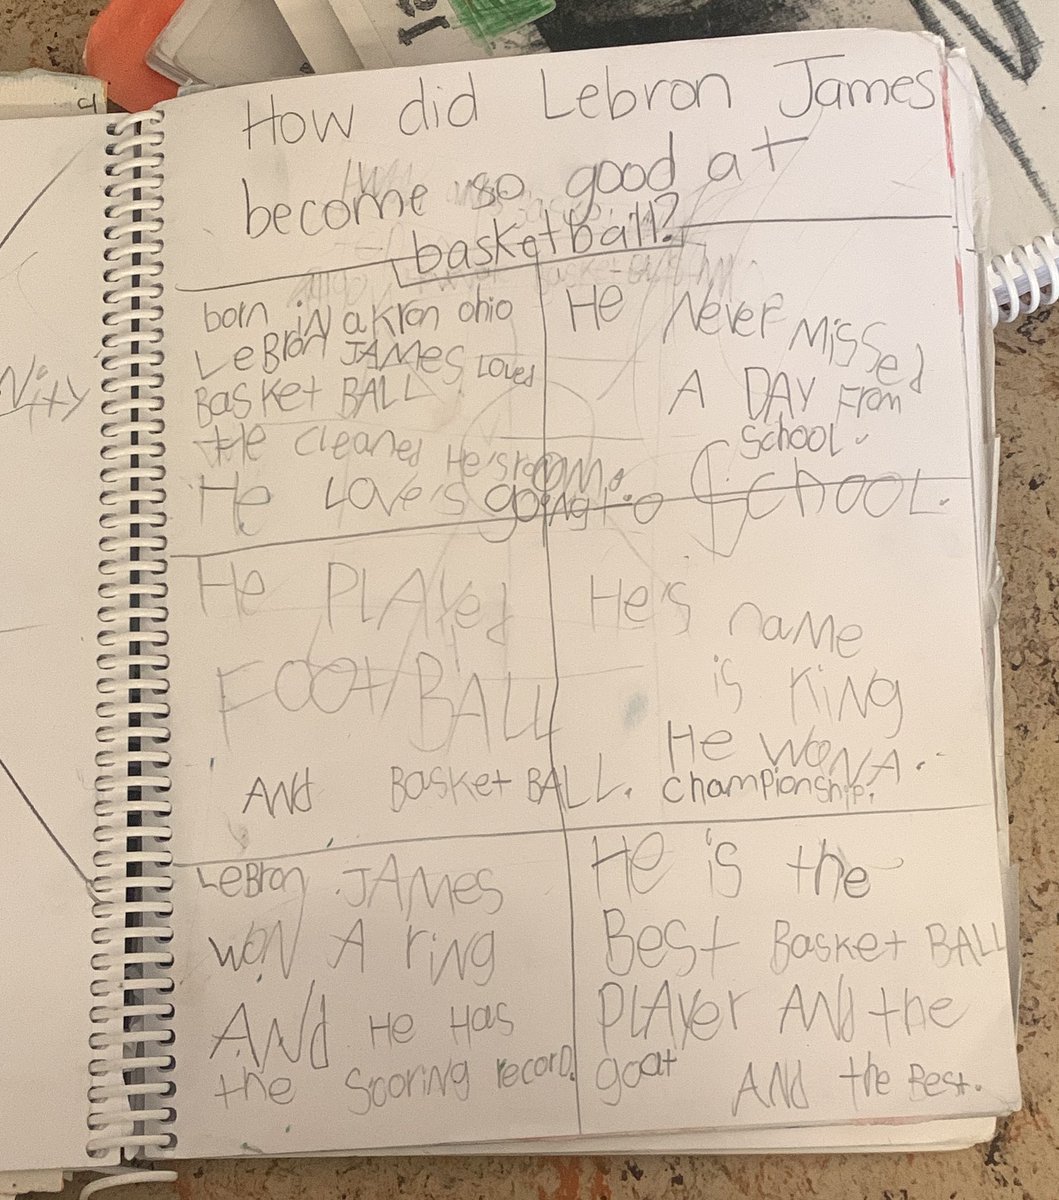 How did Lebron James
become so good at
basketball?
born in akron ohio
LeBron JAMES Loved
BASKet BALL
He cleaned He's room.
He Loves going to School.
He Never Missed
A DAY From
School.
He PLAyed
FOOt/BALL
ANd BASKet BALL.
He's name
is KiNg
He woN A.
championship.
LeBron JAMES
woN A riNg
ANd He HAS
the Scoring record.
He is the
Best BASKet BALL
PLAyer ANd the
goat ANd the Best.
Nity